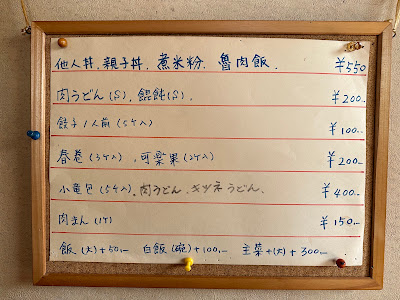 他人丼.親子丼.煮米粉.魯肉飯. ¥550
肉うどん(S).餛飩(S). ¥200.-
餃子1人前(5ケ入) ¥100.-
春巻(3ケ入),可楽果(2ケ入) ¥200.-
小竜包(5ケ入).肉うどん.キツネうどん. ¥400.-
肉まん(1ケ) ¥150.-
飯(大)+50.- 白飯(碗)+100.- 主菜+(大)+300.-